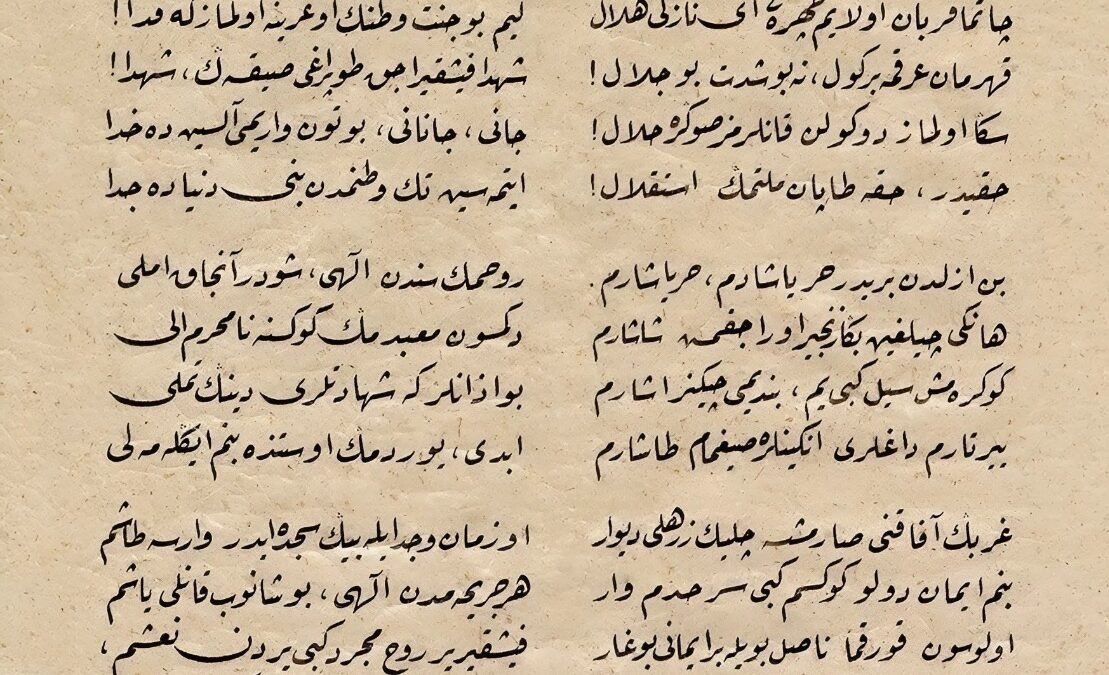 چاتما قربان اولایم چهره‌ڭ ای نازلی هلال
قهرمان عرقمه بر كول، نه بو شدت بو جلال!
سكا اولماز دوكولن قانلرمز صوكره حلال!
حقیدر، حقه طاپان ملتمك استقلال!
بن ازلدن بریدر حر یاشادم، حر یاشارم.
هانكی چیلغین بكا زنجیر اوراجقمش شاشارم
كوكره‌مش سیل كبی‌یم، بندیمی چیكنر اشارم
ییرتارم داغلری انكینلره صیغمام طاشارم
غربك آفاقنی صارمشسه چلیك زرهلی دیوار
بنم ایمان دولو كوكسم كبی سرحدم وار
اولوسون قورقما ناصل بویله بر ایمانی بوغار
كیم بو جنت وطنك اوغرینه اولمازكه فدا!
شهدا فیشقیراجق طوپراغی صیقسه‌ك، شهدا!
جانی، جانانی، بوتون واریمی آلسین ده خدا
ایتمه‌سین تك وطنمدن بنی دنیاده جدا
روحمك سندن الٓهی، شودر آنجاق املی
دكمسون معبدمك كوكسنه نامحرم الی
بو اذانلر كه شهادتلری دینك تملی
ابدی، یوردمك اوستنده بنم ایكله‌مه‌لی
او زمان وجد ایله بیك سجده ایدر وارسه طاشم
هر جریحه‌مدن الٓهی، بوشانوب قانلی یاشم
فیشقیریر روح مجرد كبی یردن نعشم،